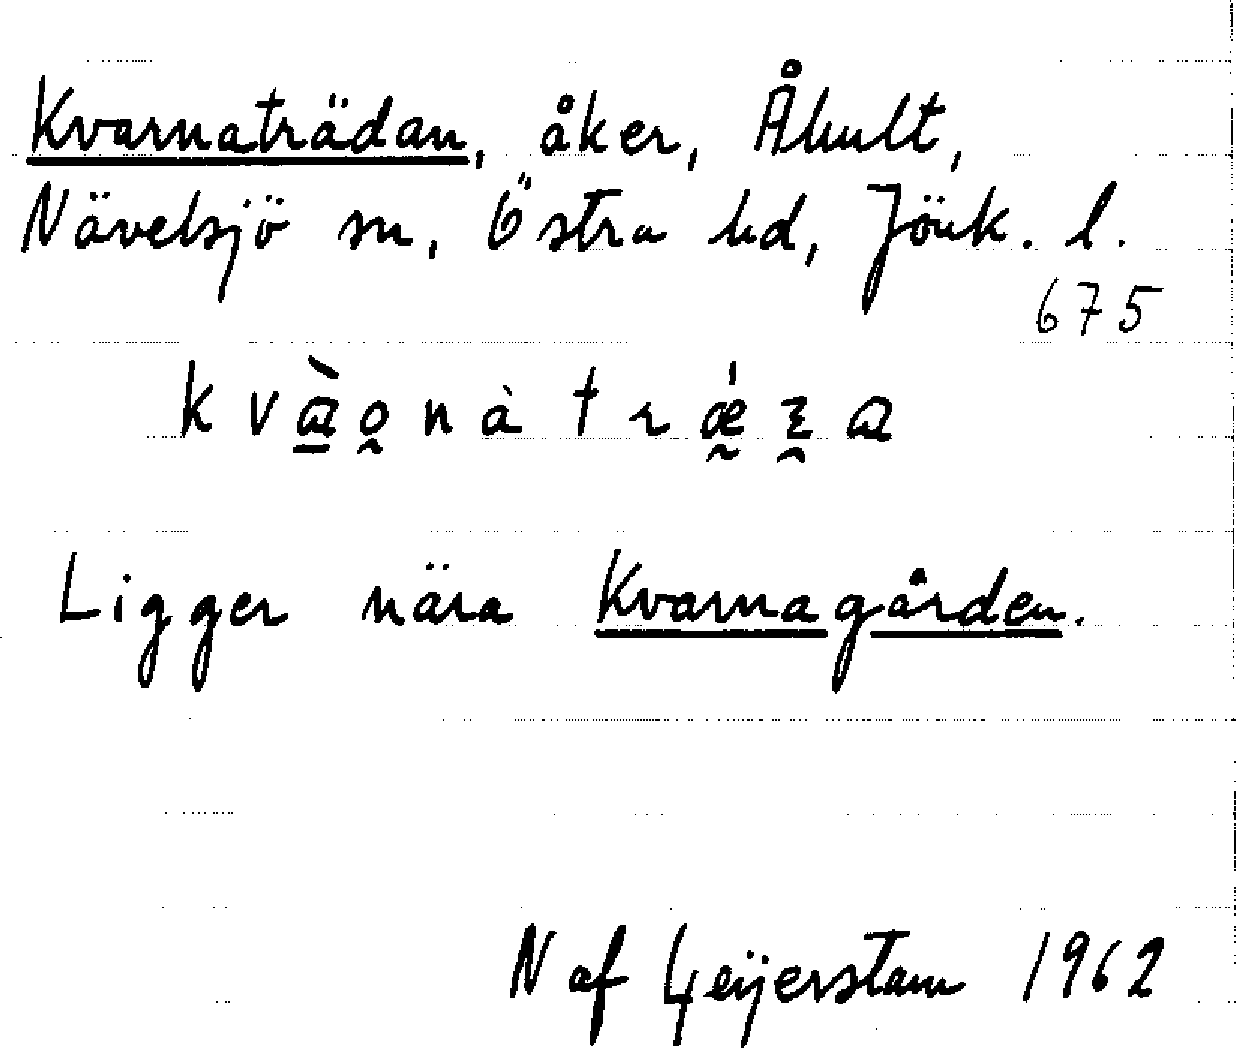 Kvarnaträdan, åker, Åhult,
Nävelsjö sn, Östra hd, Jönk. l.
675
Ligger nära Kvarnagården.
N af Geijerstam 1962